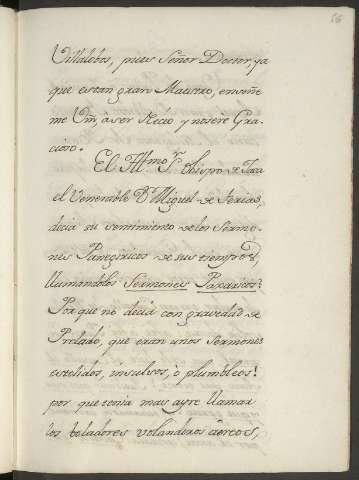 56
Villalobos, pues Señor Doctor, ya
que es tan gran Maestro, enseñe
me Vm, à ser Necio y no seré Gra-
cioso.
El Illmo. Sr. Obispo de Jaca
el Venerable Dn. Miguel de Frias,
decia su sentimiento de los Sermo-
nes Panegiricos de sus tiempos,
llamandolos Sermones Pararicos:
Por que no decia con gravedad de
Prelado, que eran unos Sermones
estolidos, insulsos, ò plumbleos!
por que tenia mas ayre llamar
los boladores volanderos aéreos,